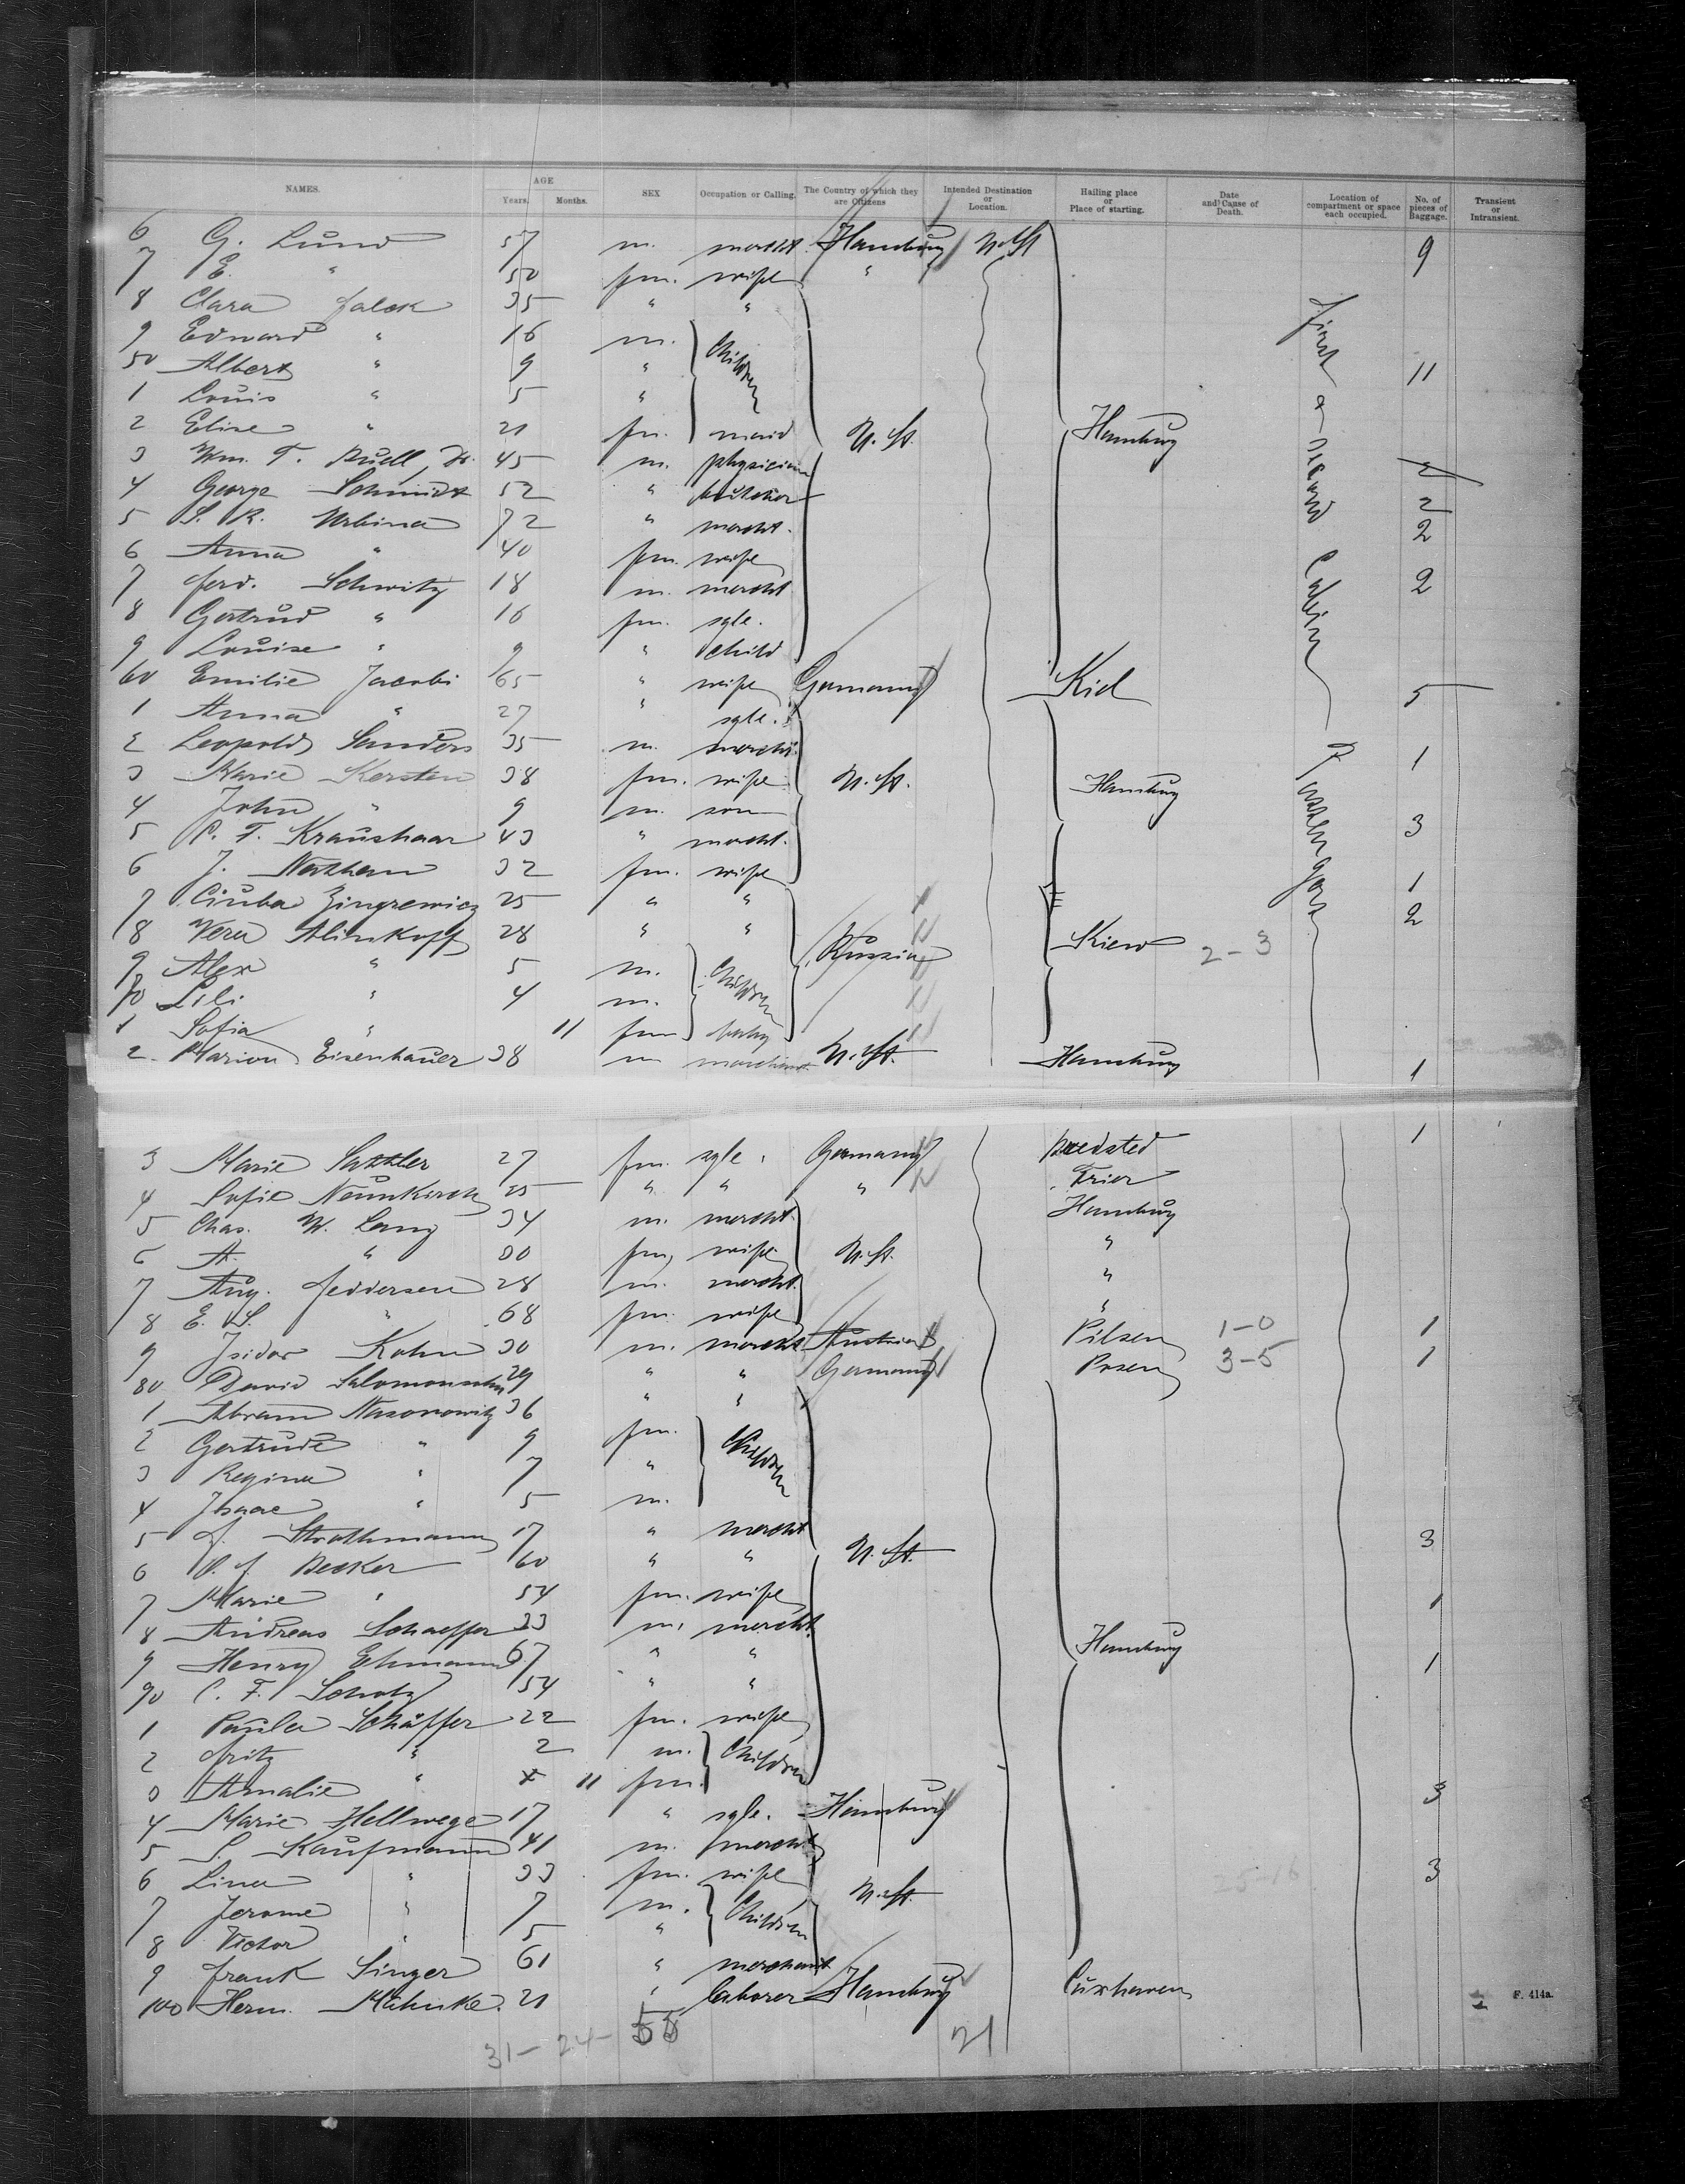 NAMES. AGE SEX Occupation or Calling. The Country of which they are Citizens Intended Destination or Location. Hailing place or Place of starting. Date and Cause of Death. Location of compartment or space each occupied. No. of pieces of Baggage. Transient or Intransient.
Years. Months.
6 G. Lund 57 m. mercht Hamburg N.Y. 9
7 E. " 50 fm. wife "
8 Clara Falck 35 " "
9 Edward " 16 m. Children
50 Albert " 9 " 11
1 Louis " 5 "
2 Elise " 21 fm. maid U. St. Hamburg
3 Wm. T. Buell, Dr. 45 m. physician 2
4 George Schmidt 52 " butcher 2
5 S. R. Urbina 72 " mercht. 2
6 Anna " 40 fm. wife
7 Ferd. Schwitz 18 m. mercht 2
8 Gertrud " 16 fm. sgle.
9 Louise " 9 " child
60 Emilie Jacobi 65 " wife Germany Kiel 5
1 Anna " 27 " sgle.
2 Leopold Sanders 35 m. mercht. 1
3 Marie Kersten 38 fm. wife U. St. Hamburg
4 John " 9 m. son
5 C. T. Kraushaar 43 " mercht. 3
6 J. Nathan 32 fm. wife 1
7 Ciuba Zingrewicz 25 " " 2
8 Vera Alinkoff 28 " " Russia Kiew 2-3
9 Alex " 5 m. Children
70 Lili " 4 m.
1 Sofia " 11 fm baby
2 Marion Eisenhauer 38 m merchant U. St. Hamburg 1
First & second Cabin
3 Marie Sattler 27 fm. sgle. Germany Bredsted 1
4 Sofie Neunkirch 25 " " " Trier
5 Chas. W. Lang 34 m. mercht. Hamburg
6 A. " 30 fm, wife U. St. "
7 Aug. Feddersen 28 m. mercht. "
8 E. S. " 68 fm. wife "
9 Isidor Kohn 30 m. mercht. Austria Pilsen 1-0 1
80 David Salomonsohn 29 " " Germany Posen 3-5 1
1 Abram Nasonowitz 36 " "
2 Gertrude " 9 fm. Children
3 Regina " 7 "
4 Isaac " 5 m.
5 J. Strathmann 17 " mercht 3
6 P. J. Becker 60 " " U. St.
7 Marie " 54 fm. wife 1
8 Andreas Schaeffer 33 m, mercht.
9 Henry Ehmann 67 " " Hamburg 1
90 C. F. Scholz 54 " "
1 Paula Schäffer 22 fm. wife
2 Fritz " 2 m. Children
3 Amalie " 11 fm. 3
4 Marie Hellwege 17 " sgle. Hamburg
5 S. Kaufmann 41 m. mercht
6 Lina " 33 fm. wife U. St. 25-16 3
7 Jerome " 7 m. Children
8 Victor " 5 "
9 Frank Singer 61 " merchant
100 Herm. Mahnke. 21 " laborer Hamburg Cuxhaven F. 414a.
31-24-55 21